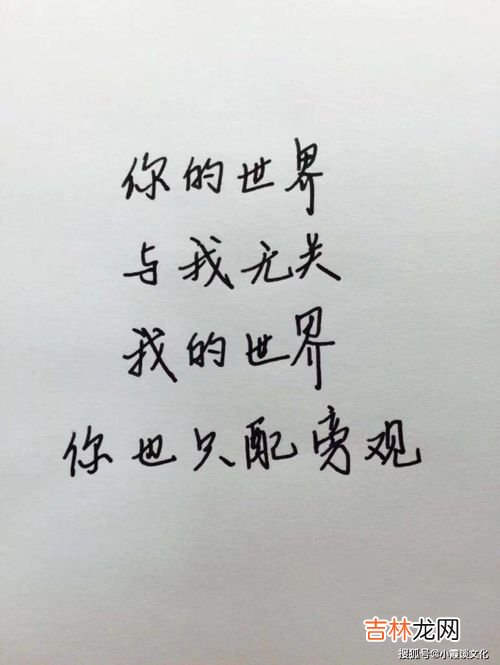 你的世界
与我无关
我的世界
你也只配旁观
吉林龙网
搜狐号@小霞谈文化